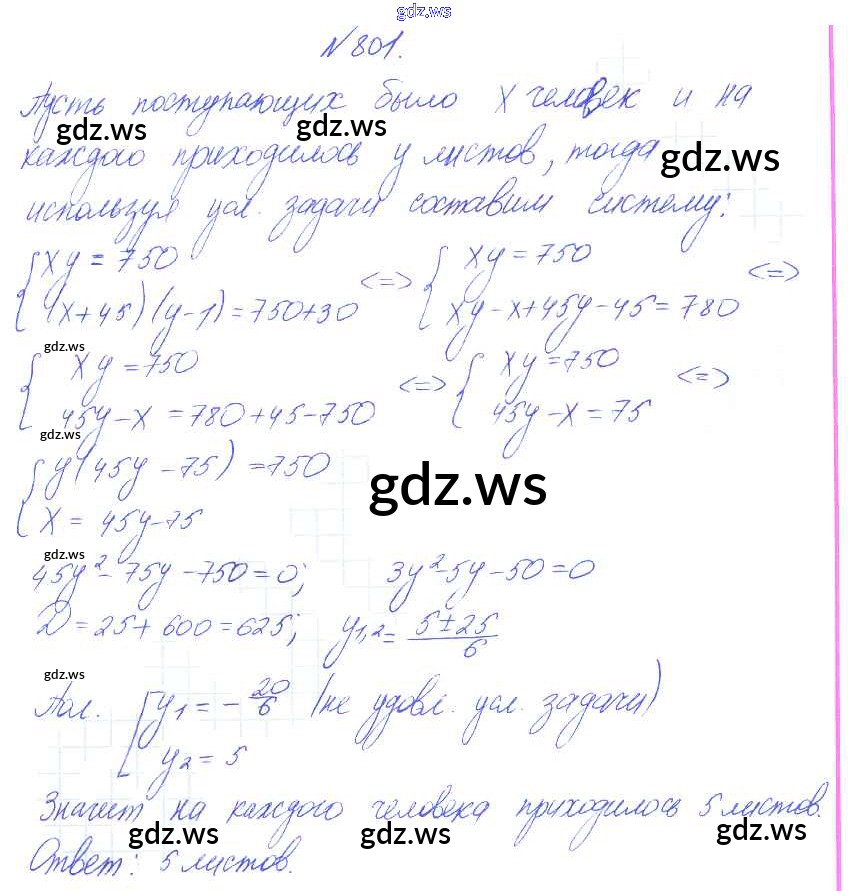 gdz.ws
№ 801.
Пусть поступающих было x человек и на
gdz.ws
каждого приходилось y листов, тогда
gdz.ws
используя усл. задачи составим систему:
{ xy = 750 <=> { xy = 750 <=>
(x+45)(y-1) = 750+30 xy-x+45y-45 = 780
gdz.ws
{ xy = 750 <=> { xy = 750 <=>
45y-x = 780+45-750 45y-x = 75
gdz.ws
{ y(45y-75) = 750
gdz.ws
x = 45y-75
gdz.ws
45y²-75y-750=0; 3y²-5y-50=0
D=25+600=625; y1,2 = (5±25)/6
gdz.ws
Пол. [ y1 = -20/6 (не удовл. усл. задачи)
y2 = 5
Значит на каждого человека приходилось 5 листов.
gdz.ws gdz.ws gdz.ws
Ответ: 5 листов.